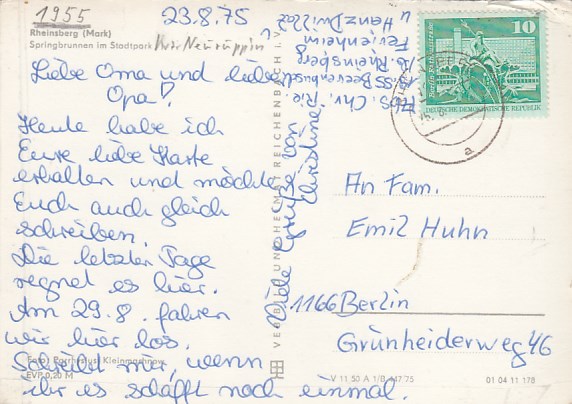 1955
23.8.75
Rheinsberg (Mark)
Springbrunnen im Stadtpark
Neuruppin
Liebe Oma und lieber
Opa!
Heute habe ich
Eure liebe Karte
erhalten und möchte
Euch auch gleich
schreiben.
Die letzten Tage
regnet es hier.
Am 29.8. fahren
wir hier los.
Schreibt mir, wenn
ihr es schafft noch einmal.
Viele Grüße von
Christine
Abs. Chr.
Rheinsberg
Ferienheim
u.
10
DEUTSCHE DEMOKRATISCHE REPUBLIK
a
An Fam.
Emil Huhn
1166 Berlin
Grünheiderweg 46
VERLAG BILD UND HEIMAT REICHENBACH I. V.
Kleinmachnow
EVP 0,20 M
V 11 50 A 1/B 147 75
01 04 11 178